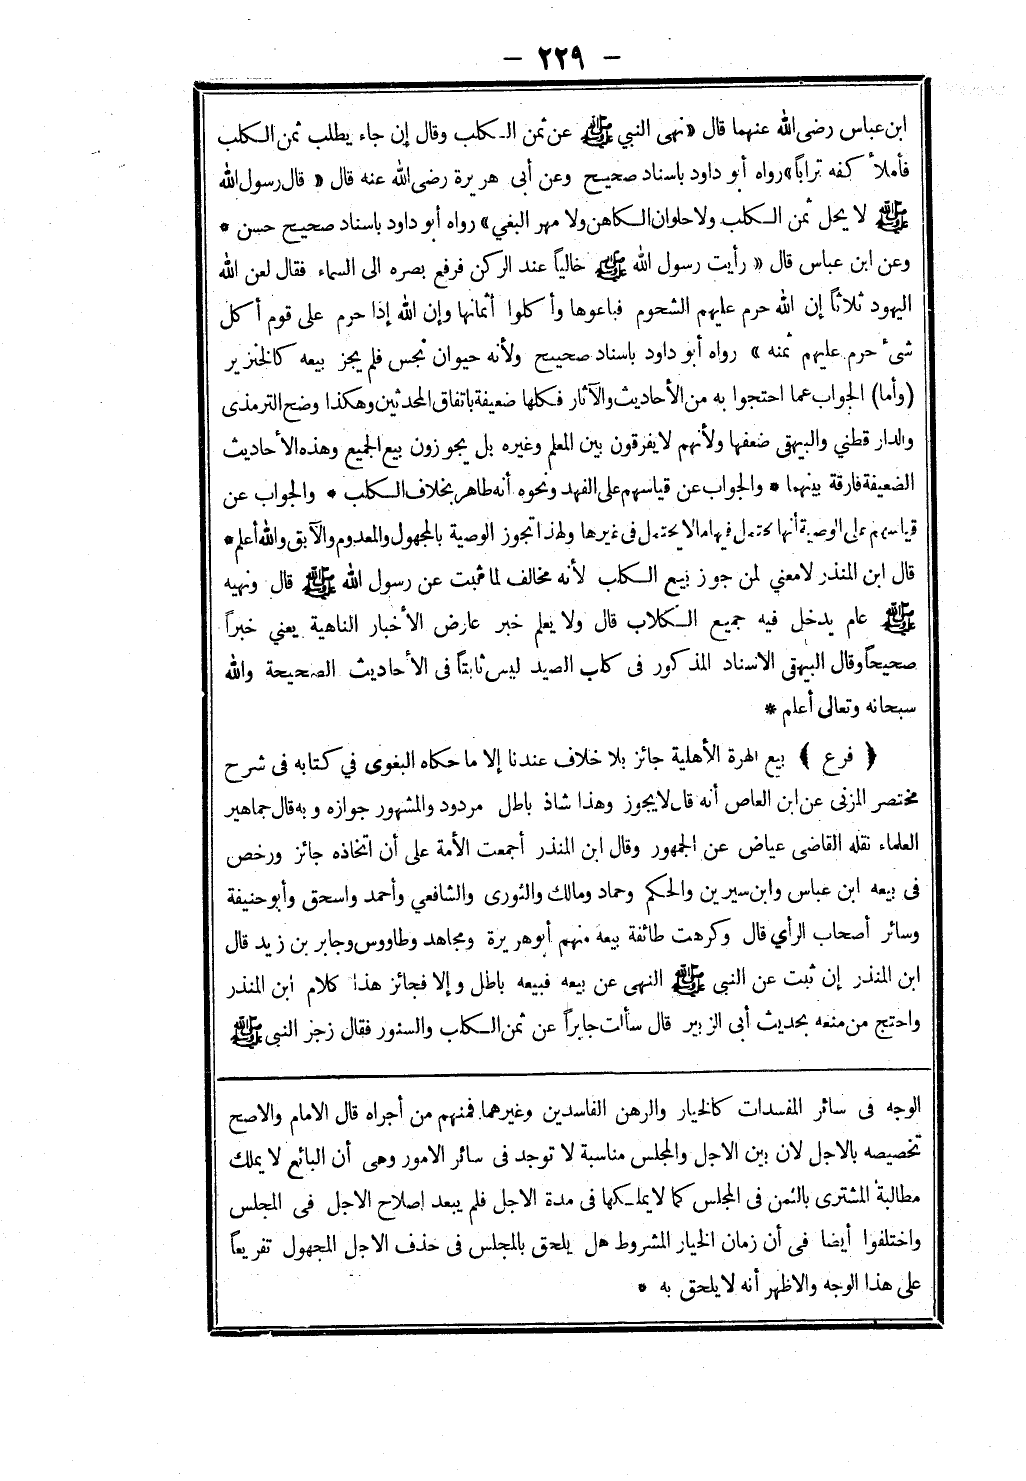 — ٢٢٩ —
ابن عباس رضى الله عنهما قال « نهى النبي ﷺ عن ثمن الكلب وقال إن جاء يطلب ثمن الكلب
فأملأ كفه تراباً » رواه أبو داود باسناد صحيح وعن أبى هريرة رضى الله عنه قال « قال رسول الله
ﷺ لا يحل ثمن الكلب ولا حلوان الكاهن ولا مهر البغي » رواه أبو داود باسناد صحيح حسن *
وعن ابن عباس قال « رأيت رسول الله ﷺ خالياً عند الركن فرفع بصره الى السماء فقال لعن الله
اليهود ثلاثاً إن الله حرم عليهم الشحوم فباعوها وأكلوا أثمانها وإن الله إذا حرم على قوم أكل
شىء حرم عليهم ثمنه » رواه أبو داود باسناد صحيح ولأنه حيوان نجس فلم يجز بيعه كالخنزير
(وأما) الجواب عما احتجوا به من الأحاديث والآثار فكلها ضعيفة باتفاق المحدثين وهكذا وضح الترمذى
والدار قطني والبيهقى ضعفها ولأنهم لا يفرقون بين المعلم وغيره بل يجوزون بيع الجميع وهذه الأحاديث
الضعيفة فارقة بينهما * والجواب عن قياسهم على الفهد ونحوه أنه طاهر بخلاف الكلب * والجواب عن
قياسهم على الوصية أنها يحتمل فيها مالا يحتمل فى غيرها ولهذا تجوز الوصية بالمجهول والمعدوم والآبق والله أعلم *
قال ابن المنذر لا معني لمن جوز بيع الكلب لأنه مخالف لما ثبت عن رسول الله ﷺ قال ونهيه
ﷺ عام يدخل فيه جميع الكلاب قال ولا يعلم خبر عارض الأخبار الناهية يعني خبراً
صحيحاً وقال البيهقى الاسناد المذكور فى كلب الصيد ليس ثابتاً فى الأحاديث الصحيحة والله
سبحانه وتعالى أعلم *
﴿ فرع ﴾ بيع الهرة الأهلية جائز بلا خلاف عندنا إلا ما حكاه البغوى في كتابه فى شرح
مختصر المزنى عن ابن العاص أنه قال لا يجوز وهذا شاذ باطل مردود والمشهور جوازه وبه قال جماهير
العلماء نقله القاضى عياض عن الجمهور وقال ابن المنذر أجمعت الأمة على أن اتخاذه جائز ورخص
فى بيعه ابن عباس وابن سيرين والحكم وحماد ومالك والثورى والشافعي وأحمد واسحق وأبو حنيفة
وسائر أصحاب الرأي قال وكرهت طائفة بيعه منهم أبو هريرة ومجاهد وطاووس وجابر بن زيد قال
ابن المنذر إن ثبت عن النبى ﷺ النهى عن بيعه فبيعه باطل وإلا فجائز هذا كلام ابن المنذر
واحتج من منعه بحديث أبى الزبير قال سألت جابراً عن ثمن الكلب والسنور فقال زجر النبى ﷺ
الوجه فى سائر المفسدات كالخيار والرهن الفاسدين وغيرهما فمنهم من أجراه قال الامام والاصح
تخصيصه بالاجل لان بين الاجل والمجلس مناسبة لا توجد فى سائر الامور وهى أن البائع لا يملك
مطالبة المشترى بالثمن فى المجلس كما لا يملكها فى مدة الاجل فلم يبعد إصلاح الاجل فى المجلس
واختلفوا أيضا فى أن زمان الخيار المشروط هل يلحق بالمجلس فى حذف الاجل المجهول تفريعاً
على هذا الوجه والاظهر أنه لا يلحق به *